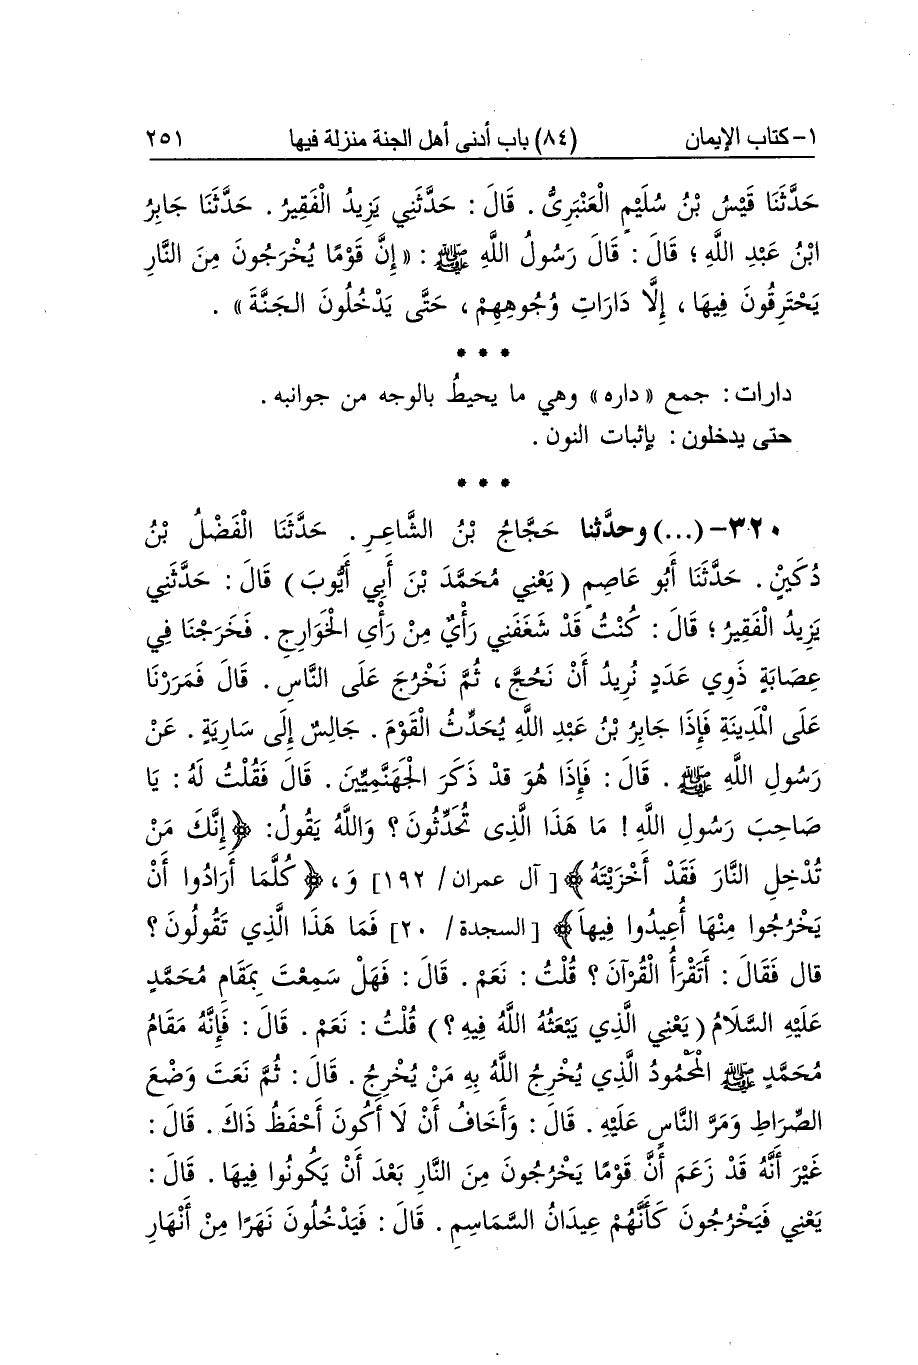 ١- كتاب الإيمان (٨٤) باب أدنى أهل الجنة منزلة فيها ٢٥١
حَدَّثَنَا قَيْسُ بْنُ سُلَيْمٍ الْعَنْبَرِىُّ . قَالَ : حَدَّثَنِي يَزِيدُ الْفَقِيرُ . حَدَّثَنَا جَابِرُ
ابْنُ عَبْدِ اللَّهِ ؛ قَالَ : قَالَ رَسُولُ اللَّهِ ﷺ : « إِنَّ قَوْمًا يُخْرَجُونَ مِنَ النَّارِ
يَحْتَرِقُونَ فِيهَا ، إِلَّا دَارَاتِ وُجُوهِهِمْ ، حَتَّى يَدْخُلُونَ الجَنَّةَ » .
* * *
دارات : جمع « داره » وهي ما يحيطُ بالوجه من جوانبه .
حتى يدخلون : بإثبات النون .
* * *
٣٢٠- (...) وحدَّثنا حَجَّاجُ بْنُ الشَّاعِرِ . حَدَّثَنَا الْفَضْلُ بْنُ
دُكَيْنٍ . حَدَّثَنَا أَبُو عَاصِمٍ ( يَعْنِي مُحَمَّدَ بْنَ أَبِي أَيُّوبَ ) قَالَ : حَدَّثَنِي
يَزِيدُ الْفَقِيرُ ؛ قَالَ : كُنْتُ قَدْ شَغَفَنِي رَأْيٌ مِنْ رَأْيِ الْخَوَارِجِ . فَخَرَجْنَا فِي
عِصَابَةٍ ذَوِي عَدَدٍ نُرِيدُ أَنْ نَحُجَّ ، ثُمَّ نَخْرُجَ عَلَى النَّاسِ . قَالَ فَمَرَرْنَا
عَلَى الْمَدِينَةِ فَإِذَا جَابِرُ بْنُ عَبْدِ اللَّهِ يُحَدِّثُ الْقَوْمَ . جَالِسٌ إِلَى سَارِيَةٍ . عَنْ
رَسُولِ اللَّهِ ﷺ . قَالَ : فَإِذَا هُوَ قدْ ذَكَرَ الْجَهَنَّمِيِّينَ . قَالَ فَقُلْتُ لَهُ : يَا
صَاحِبَ رَسُولِ اللَّهِ ! مَا هَذَا الَّذِى تُحَدِّثُونَ ؟ وَاللَّهُ يَقُولُ : ﴿ إِنَّكَ مَنْ
تُدْخِلِ النَّارَ فَقَدْ أَخْزَيْتَهُ ﴾ [ آل عمران / ١٩٢ ] وَ ، ﴿ كُلَّمَا أَرَادُوا أَنْ
يَخْرُجُوا مِنْهَا أُعِيدُوا فِيهاَ ﴾ [ السجدة / ٢٠ ] فَمَا هَذَا الَّذِي تَقُولُونَ ؟
قال فَقَالَ : أَتَقْرَأُ الْقُرْآنَ ؟ قُلْتُ : نَعَمْ . قَالَ : فَهَلْ سَمِعْتَ بِمَقَامِ مُحَمَّدٍ
عَلَيْهِ السَّلَامُ ( يَعْنِي الَّذِي يَبْعَثُهُ اللَّهُ فِيهِ ؟ ) قُلْتُ : نَعَمْ . قَالَ : فَإِنَّهُ مَقَامُ
مُحَمَّدٍ ﷺ الْمَحْمُودُ الَّذِي يُخْرِجُ اللَّهُ بِهِ مَنْ يُخْرِجُ . قَالَ : ثُمَّ نَعَتَ وَضْعَ
الصِّرَاطِ وَمَرَّ النَّاسِ عَلَيْهِ . قَالَ : وَأَخَافُ أَنْ لَا أَكُونَ أَحْفَظُ ذَاكَ . قَالَ :
غَيْرَ أَنَّهُ قَدْ زَعَمَ أَنَّ قَوْمًا يَخْرُجُونَ مِنَ النَّارِ بَعْدَ أَنْ يَكُونُوا فِيهَا . قَالَ :
يَعْنِي فَيَخْرُجُونَ كَأَنَّهُمْ عِيدَانُ السَّمَاسِمِ . قَالَ : فَيَدْخُلُونَ نَهَرًا مِنْ أَنْهَارِ